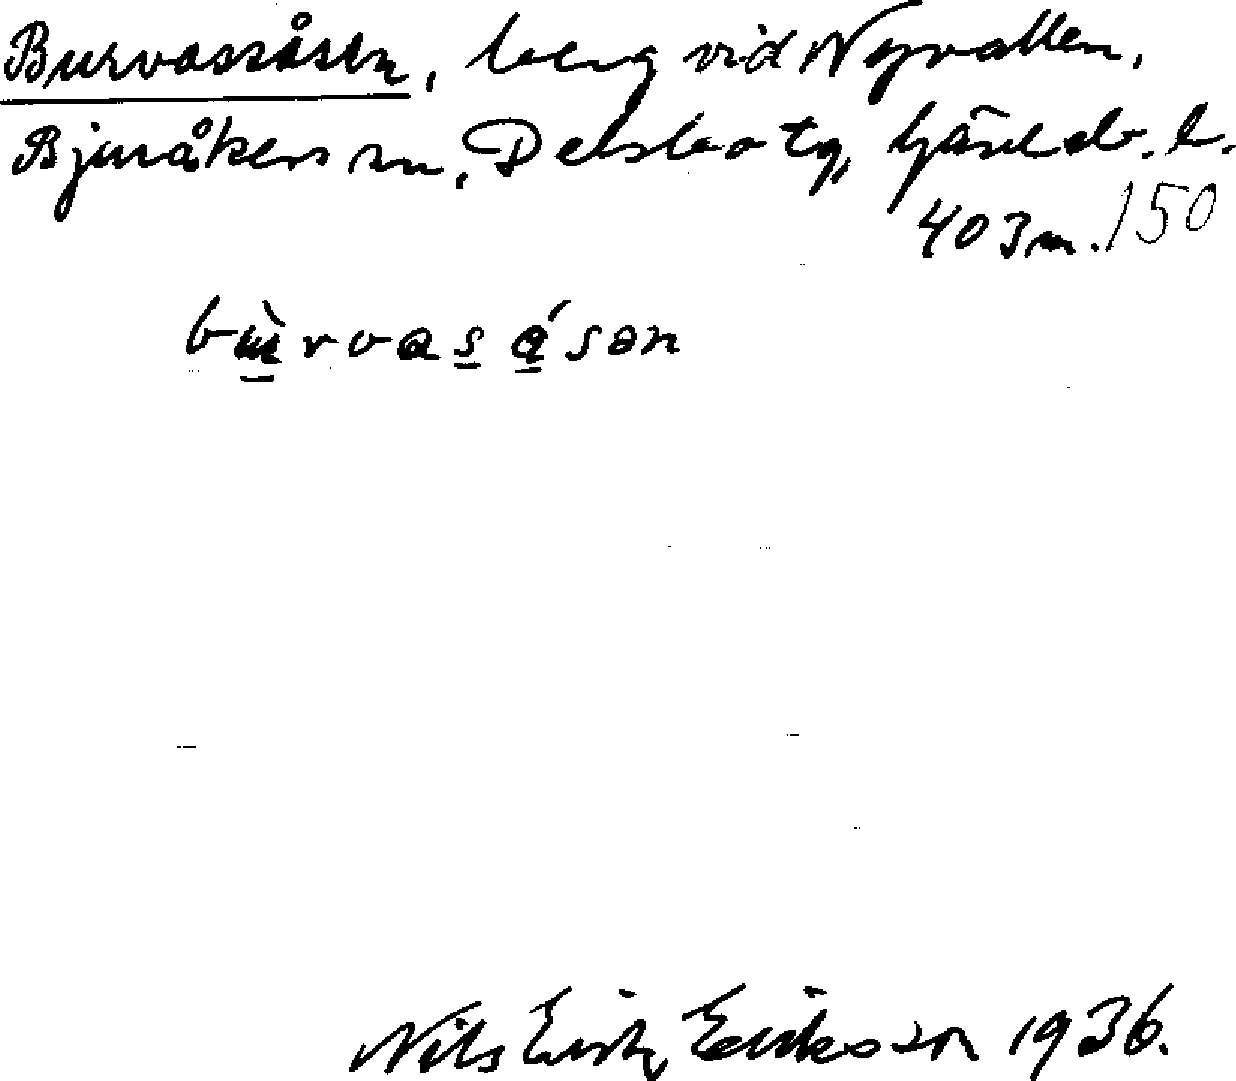 Burvassåsen, berg vid Nyvallen,
Bjuråkers sn, Delsbo tg, Gävleb. l.
403 m. 150
bùrvasåsən
Nils Erik Eriksson 1936.